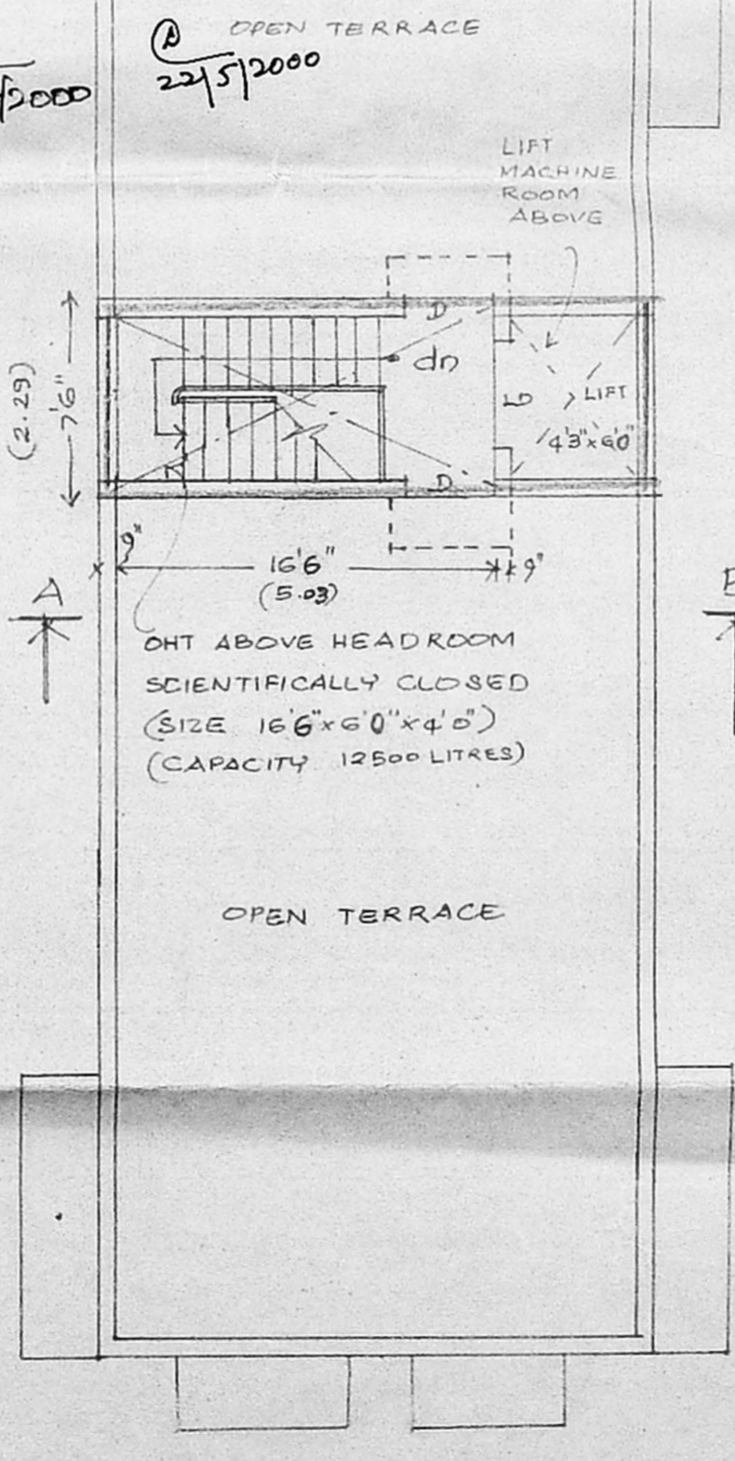 OPEN TERRACE
A
22/5/2000
/2000
LIFT
MACHINE
ROOM
ABOVE
D
dn
LD
LIFT
4'3"x6'0"
(2.29)
7'6"
D
9"
16'6"
(5.03)
9"
A
OHT ABOVE HEADROOM
SCIENTIFICALLY CLOSED
(SIZE 16'6"x6'0"x4'0")
(CAPACITY 12500 LITRES)
OPEN TERRACE